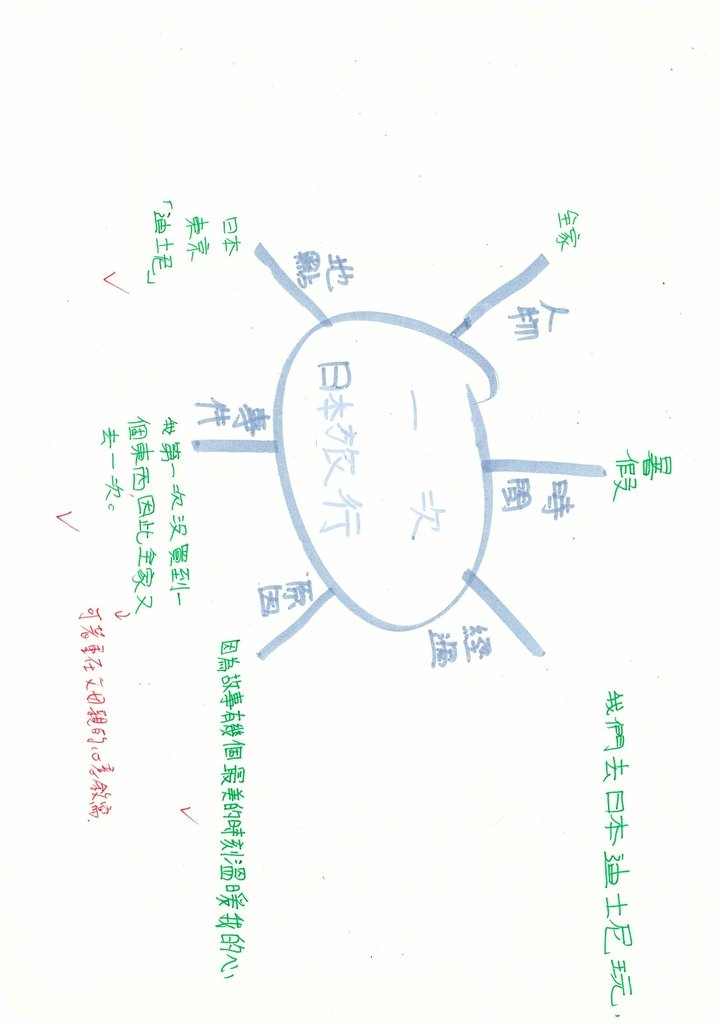 一次
日本旅行
人物
全家
時間
暑假
經過
我們去日本迪士尼玩,
地點
日本
東京
「迪士尼」
事件
我第一次沒買到一
個東西,因此全家又
去一次。
可著重在父母親的心意敘寫.
原因
因為故事有幾個最美的時刻溫暖我的心